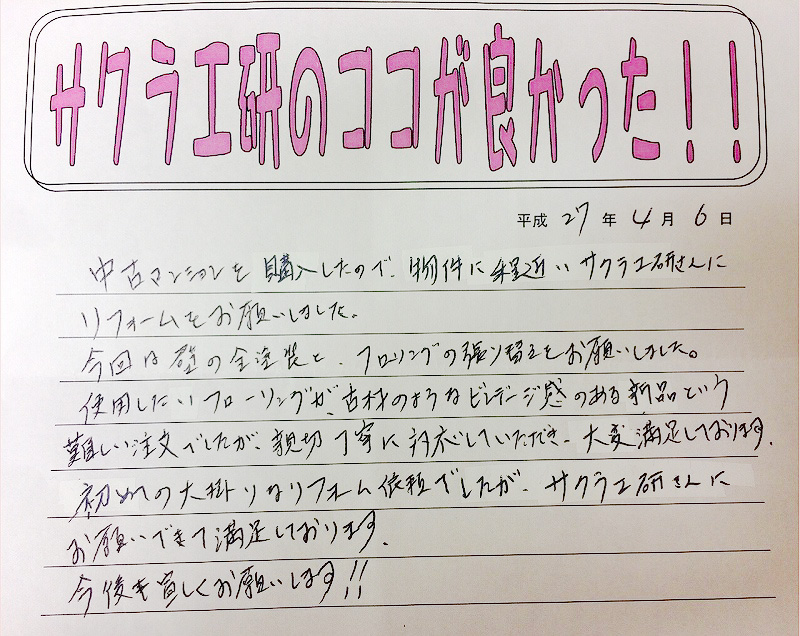 サクラ工研のココが良かった！！
平成 27 年 4 月 6 日
中古マンションを購入したので、物件に程近いサクラ工研さんに
リフォームをお願いしました。
今回は壁の全塗装と、フロリングの張り替えをお願いしました。
使用したいフローリングが、古材のようなビンテージ感のある新品という
難しい注文でしたが、親切丁寧に対応していただき、大変満足しております。
初めての大掛りなリフォーム依頼でしたが、サクラ工研さんに
お願いできて満足しております。
今後も宜しくお願いします！！